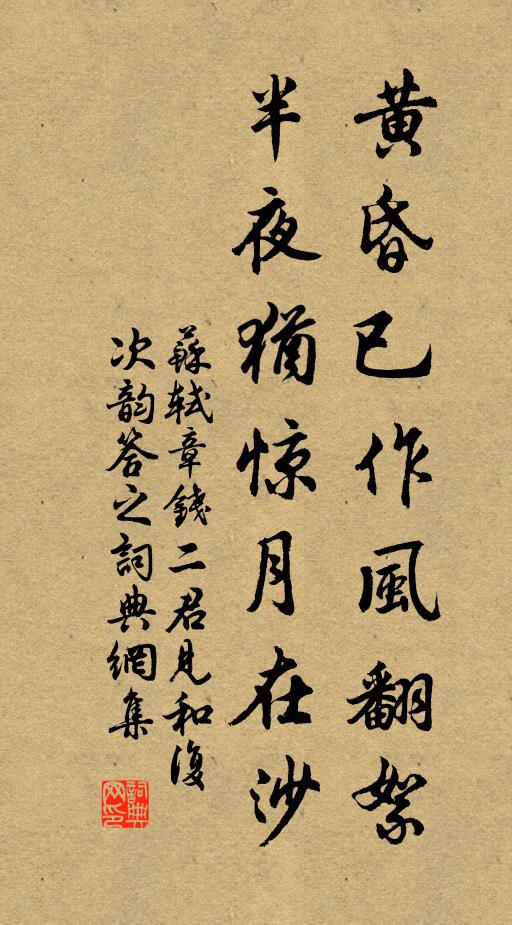 黃昏已作風翻絮
半夜猶惊月在沙
蘇軾章錢二君見和復
次韵答之詞典網集
詞典网印